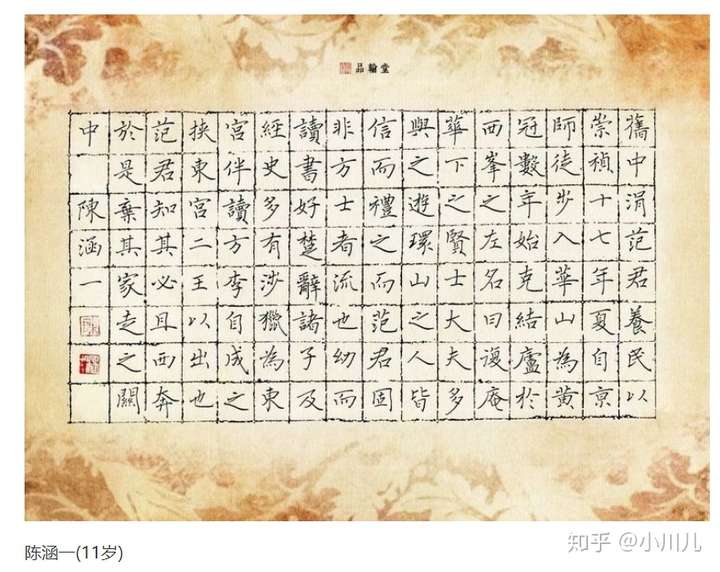 品翰堂
舊中涓范君養民以
崇禎十七年夏自京
師徒步入華山為黃
冠數年始克結廬於
西峯之左名曰復庵
華下之賢士大夫多
與之遊環山之人皆
信而禮之而范君固
非方士者流也幼而
讀書好楚辭諸子及
經史多有涉獵為東
宮伴讀方李自成之
挾東宮二王以出也
范君知其必且西奔
於是棄其家走之關
中 陳涵一
陈涵一(11岁)
知乎 @小川儿